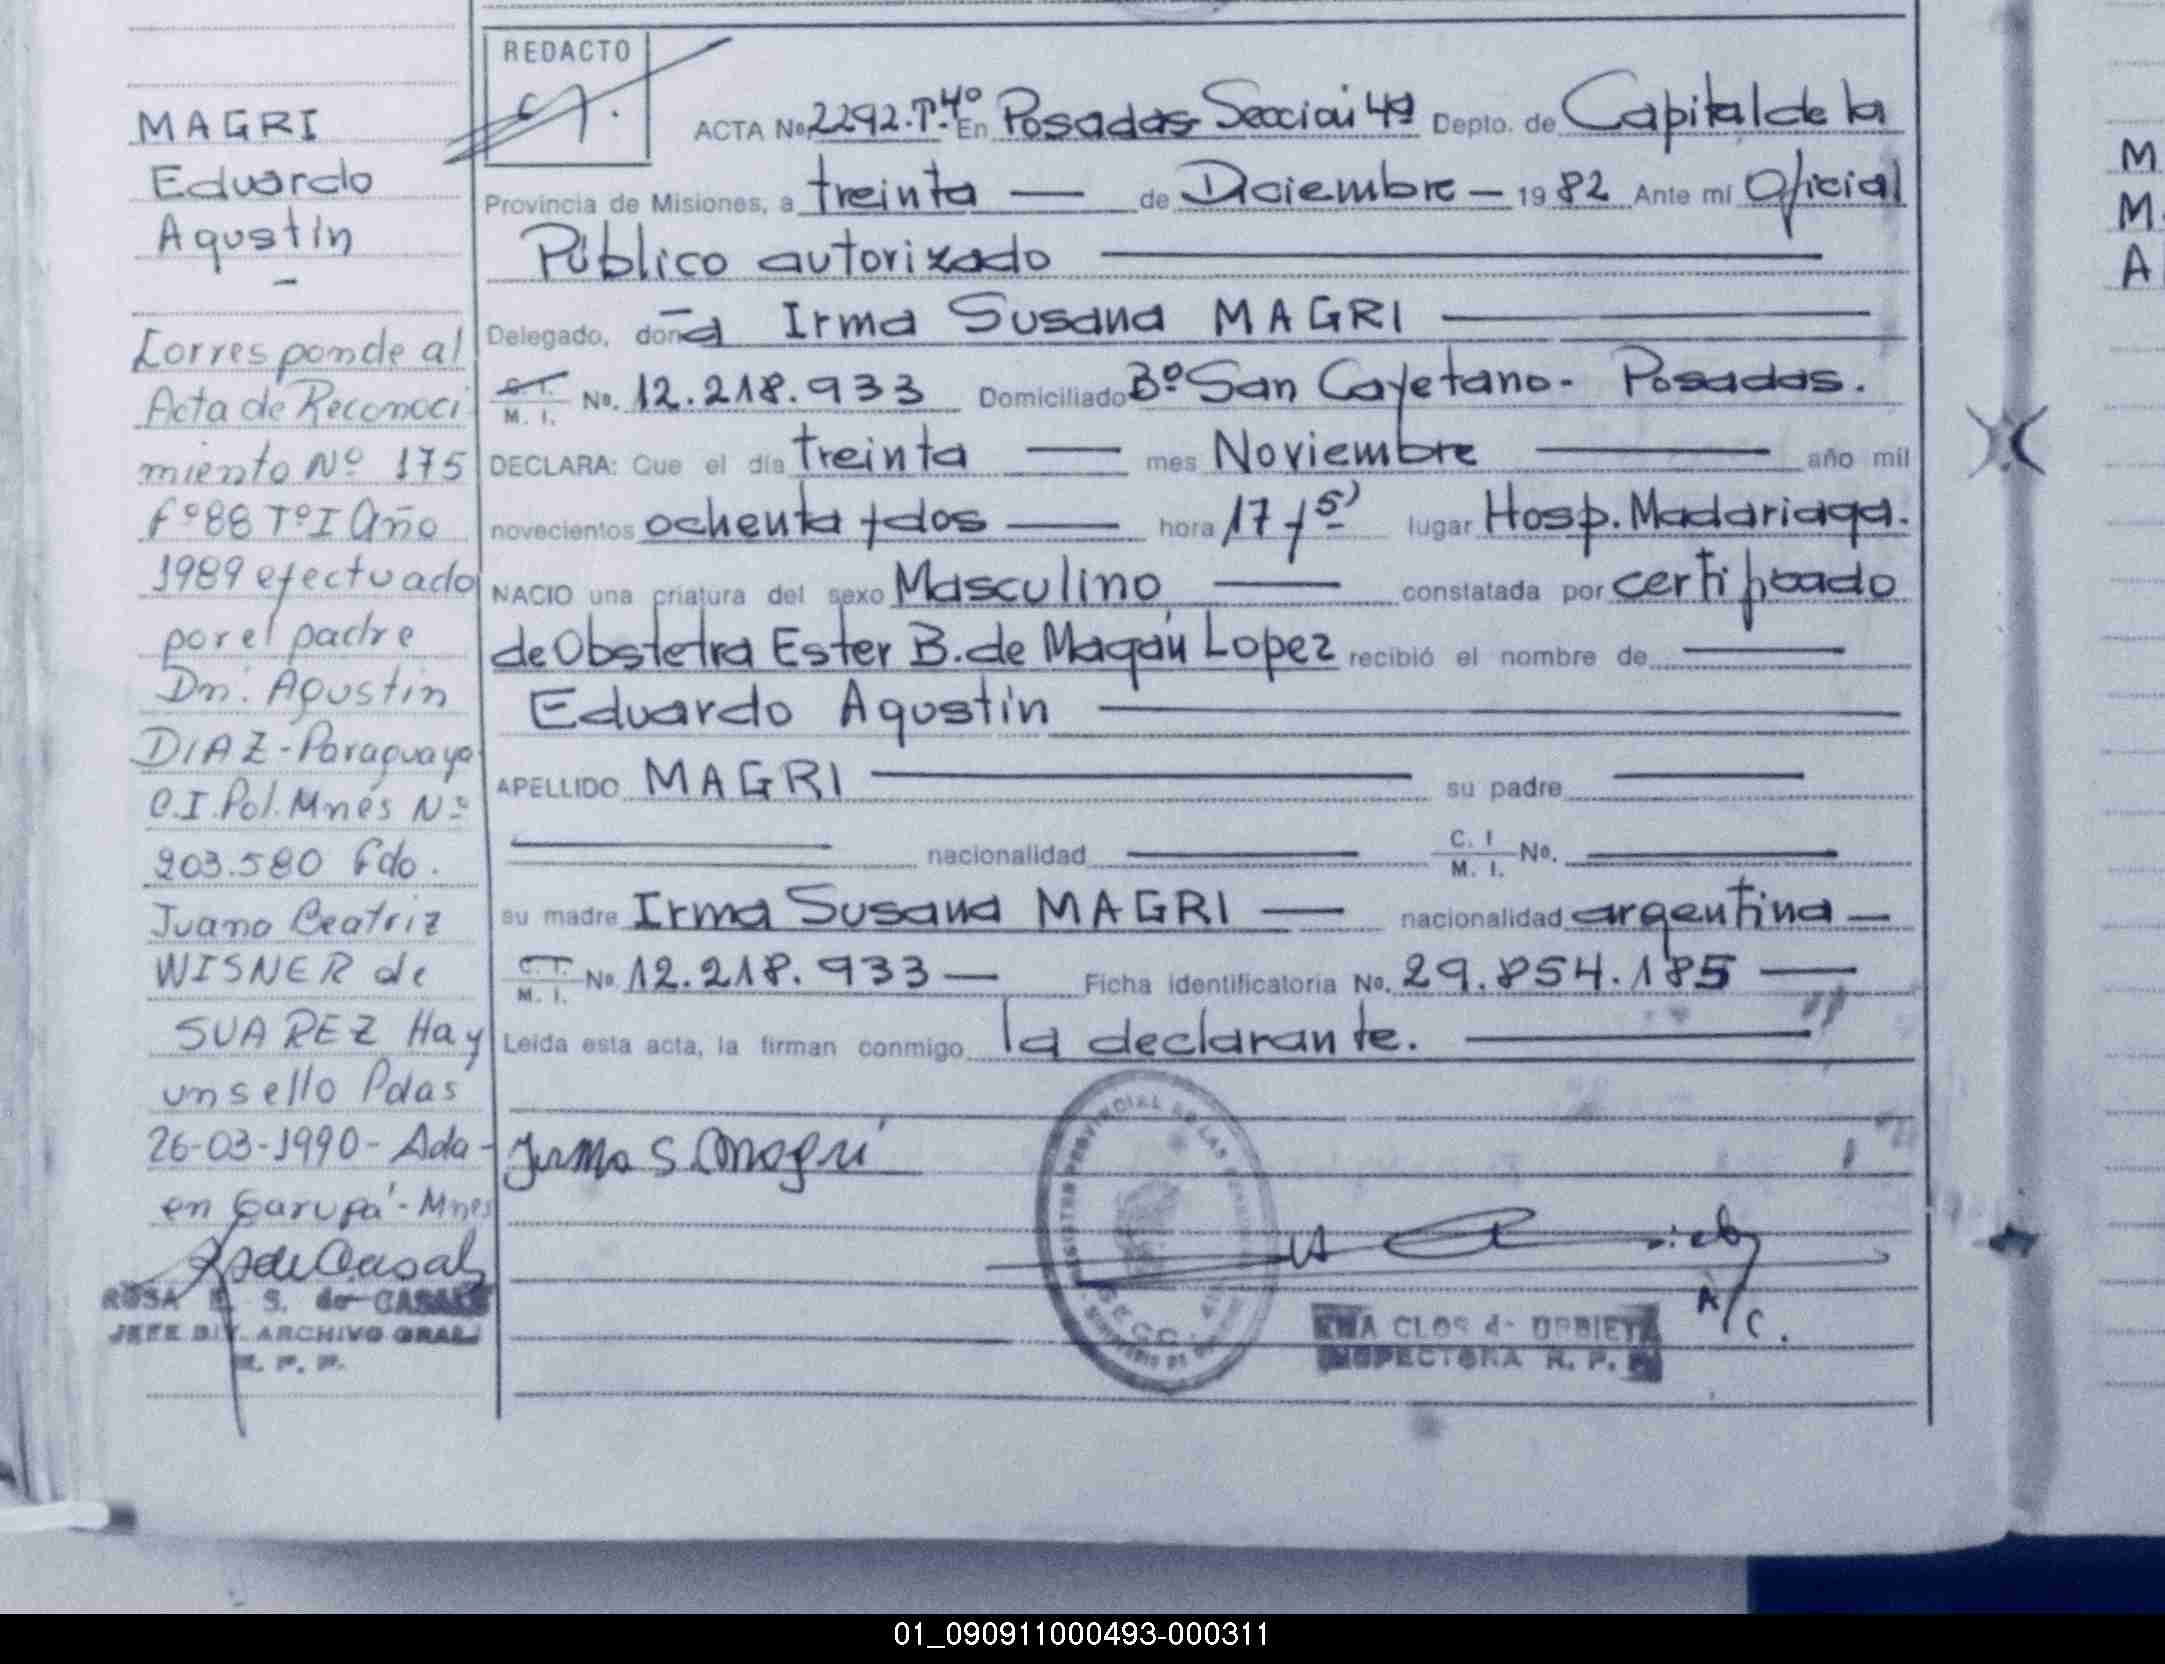 MAGRI
Eduardo
Agustín
-
Corresponde al
Acta de Reconoci
miento Nº 175
fº88 TºI Año
1989 efectuado
por el padre
Dn. Agustin
DIAZ-Paraguayo
C.I.Pol.Mnes Nº
203.580 Fdo.
Juana Beatriz
WISNER de
SUAREZ Hay
un sello Pdas
26-03-1990-Ada-
en Garupá-Mnes
ROSA E. S. de CASALS
JEFE DIV. ARCHIVO GRAL.
R. P. P.
REDACTO
ACTA No. 2292.Tº4º En Posadas Sección 4ª Depto. de Capital de la
Provincia de Misiones, a treinta — de Diciembre — 1982 Ante mí Oficial
Público autorizado —
Delegado, doña Irma Susana MAGRI —
C. I. M. I. No. 12.218.933 Domiciliado Bº San Cayetano- Posadas.
DECLARA: Que el día treinta — mes Noviembre — año mil
novecientos ochenta y dos — hora 17 y 5' lugar Hosp. Madariaga.
NACIO una criatura del sexo Masculino — constatada por certificado
de Obstetra Ester B. de Magán Lopez recibió el nombre de —
Eduardo Agustín —
APELLIDO MAGRI — su padre —
— nacionalidad — C. I M. I. No. —
su madre Irma Susana MAGRI — nacionalidad argentina —
C. I. M. I. No. 12.218.933 — Ficha identificatoria No. 29.854.185 —
Leída esta acta, la firman conmigo la declarante. —
Irma S. Magri
A/C.
CLOS de URBIETA
INSPECTORA R. P. P.
M
M
A
01_090911000493-000311